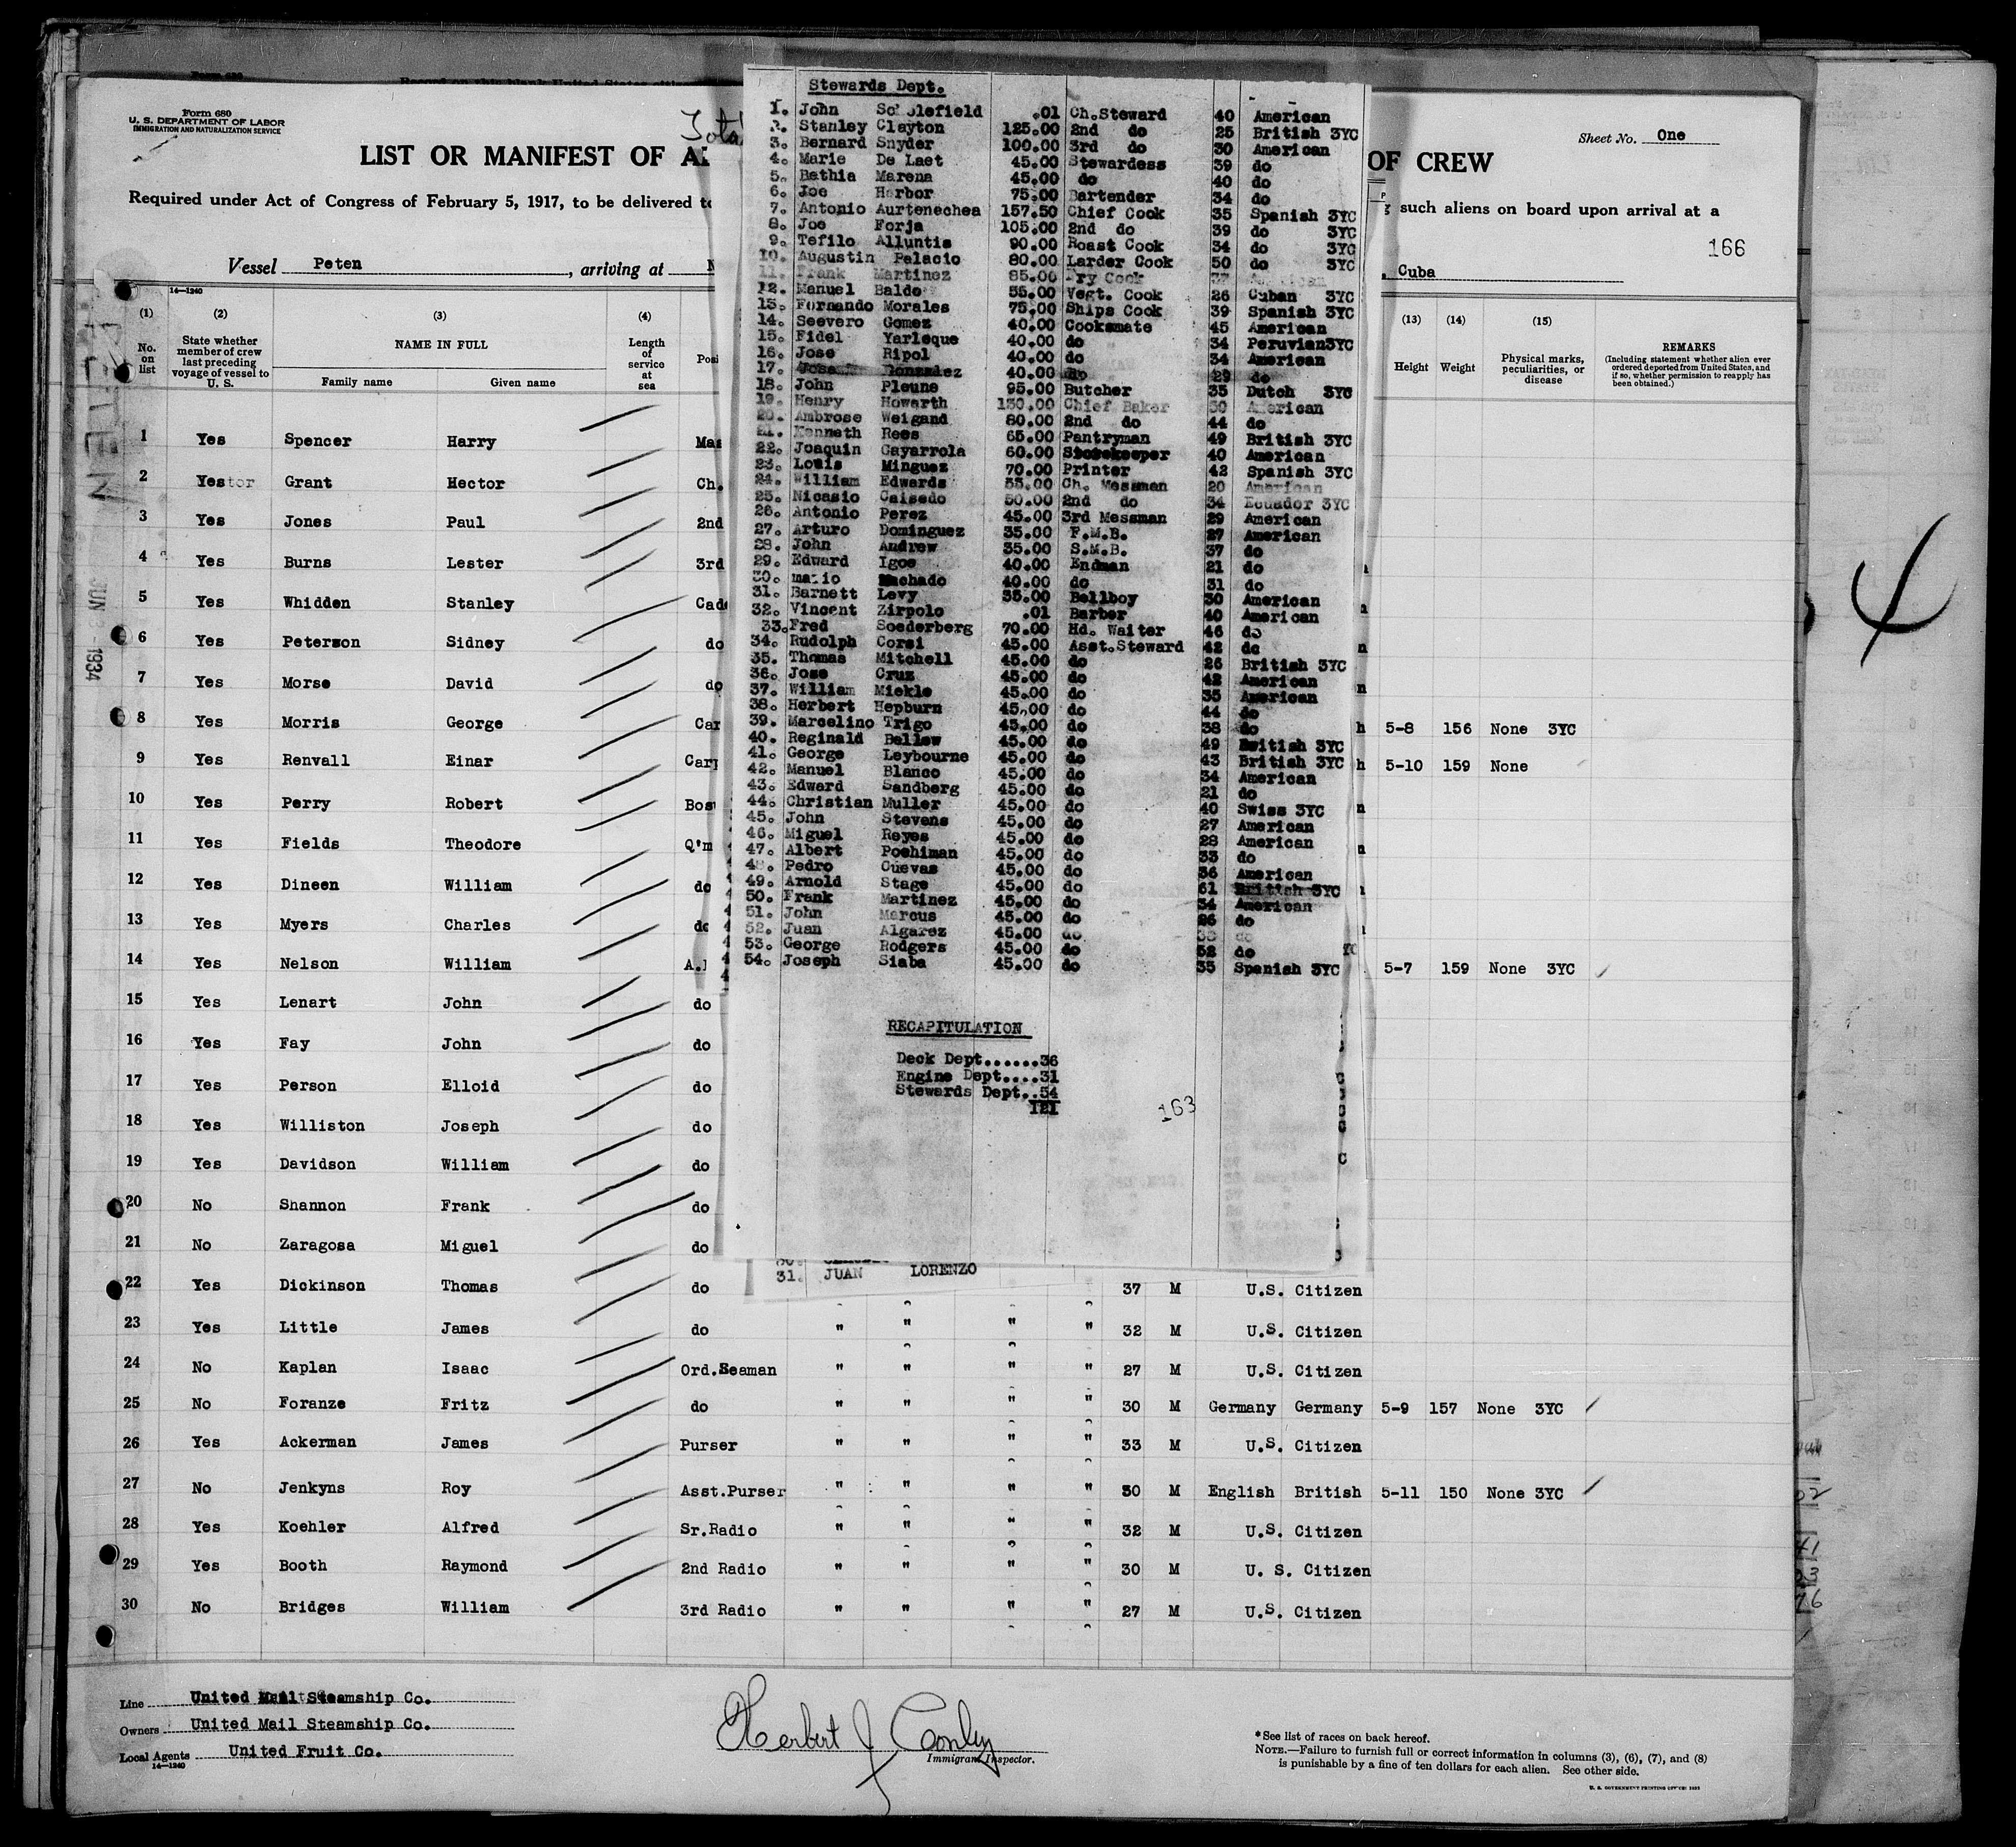 Form 680
U. S. DEPARTMENT OF LABOR
IMMIGRATION AND NATURALIZATION SERVICE
LIST OR MANIFEST OF
OF CREW
Sheet No. One
Required under Act of Congress of February 5, 1917, to be delivered
such aliens on board upon arrival at a
166
Vessel Peten, arriving at
Cuba
14—1240
(1) (2) (3) (4) (13) (14) (15)
No. on list
State whether member of crew last preceding voyage of vessel to U. S.
NAME IN FULL
Family name Given name
Length of service at sea
Height Weight
Physical marks, peculiarities, or disease
REMARKS
(Including statement whether alien ever ordered deported from United States, and if so, whether permission to reapply has been obtained.)
JUN 1934
1 Yes Spencer Harry
2 Yes Grant Hector Ch.
3 Yes Jones Paul 2nd
4 Yes Burns Lester 3rd
5 Yes Whidden Stanley
6 Yes Peterson Sidney do
7 Yes Morse David do
8 Yes Morris George 5-8 156 None 3YC
9 Yes Renvall Einar 5-10 159 None
10 Yes Perry Robert
11 Yes Fields Theodore
12 Yes Dineen William do
13 Yes Myers Charles
14 Yes Nelson William 5-7 159 None 3YC
15 Yes Lenart John do
16 Yes Fay John do
17 Yes Person Elloid do
18 Yes Williston Joseph do
19 Yes Davidson William do
20 No Shannon Frank do
21 No Zaragosa Miguel do
22 Yes Dickinson Thomas do 37 M U.S. Citizen
23 Yes Little James do " " " " 32 M U.S. Citizen
24 No Kaplan Isaac Ord.Seaman " " " " 27 M U.S. Citizen
25 No Foranze Fritz do " " " " 30 M Germany Germany 5-9 157 None 3YC
26 Yes Ackerman James Purser " " " " 33 M U.S. Citizen
27 No Jenkyns Roy Asst.Purser " " " " 30 M English British 5-11 150 None 3YC
28 Yes Koehler Alfred Sr.Radio " " " " 32 M U.S. Citizen
29 Yes Booth Raymond 2nd Radio " " " " 30 M U. S. Citizen
30 No Bridges William 3rd Radio " " " " 27 M U.S. Citizen
Stewards Dept.
1. John Scholefield .01 Ch.Steward 40 American
2. Stanley Clayton 125.00 2nd do 25 British 3YC
3. Bernard Snyder 100.00 3rd do 30 American
4. Marie De Laet 45.00 Stewardess 39 do
5. Bathia Marena 45.00 do 40 do
6. Joe Harbor 75.00 Bartender 34 do
7. Antonio Aurtenechea 157.50 Chief Cook 35 Spanish 3YC
8. Joe Forja 105.00 2nd do 39 do 3YC
9. Tefilo Alluntis 90.00 Roast Cook 34 do 3YC
10. Augustin Palacio 80.00 Larder Cook 50 do 3YC
11. Frank Martinez 85.00 Fry Cook American
12. Manuel Baldo 55.00 Vegt. Cook 26 Cuban 3YC
13. Fernando Morales 75.00 Ships Cook 39 Spanish 3YC
14. Seevero Gomez 40.00 Cooksmate 45 American
15. Fidel Yarleque 40.00 do 34 Peruvian3YC
16. Jose Ripol 40.00 do 34 American
17. Jose Gonzalez 40.00 do 29 do
18. John Pleune 95.00 Butcher 35 Dutch 3YC
19. Henry Howarth 130.00 Chief Baker 50 American
20. Ambrose Weigand 80.00 2nd do 44 do
21. Kenneth Rees 65.00 Pantryman 49 British 3YC
22. Joaquin Gayarrola 60.00 Storekeeper 40 American
23. Louis Minguez 70.00 Printer 42 Spanish 3YC
24. William Edwards 55.00 Ch. Messman 20 American
25. Nicasio Caisedo 50.00 2nd do 34 Ecuador 3YC
26. Antonio Perez 45.00 3rd Messman 29 American
27. Arturo Dominguez 35.00 F.M.B. 27 American
28. John Andrew 35.00 S.M.B. 37 do
29. Edward Igoe 40.00 Endman 21 do
30. Machado 40.00 do 31 do
31. Barnett Levy 35.00 Bellboy 30 American
32. Vincent Zirpolo .01 Barber 40 American
33. Fred Soederberg 70.00 Hd. Waiter 46 do
34. Rudolph Corsi 45.00 Asst.Steward 42 do
35. Thomas Mitchell 45.00 do 26 British 3YC
36. Jose Cruz 45.00 do 42 American
37. William Miekle 45.00 do 35 American
38. Herbert Hepburn 45.00 do 44 do
39. Marcelino Trigo 45.00 do 38 do
40. Reginald Bellew 45.00 do 49 British 3YC
41. George Leybourne 45.00 do 43 British 3YC
42. Manuel Blanco 45.00 do 34 American
43. Edward Sandberg 45.00 do 21 do
44. Christian Muller 45.00 do 40 Swiss 3YC
45. John Stevens 45.00 do 27 American
46. Miguel Reyes 45.00 do 28 American
47. Albert Poehlman 45.00 do 33 do
48. Pedro Cuevas 45.00 do 36 American
49. Arnold Stage 45.00 do 61 British 3YC
50. Frank Martinez 45.00 do 34 American
51. John Marcus 45.00 do 26 do
52. Juan Algarez 45.00 do do
53. George Rodgers 45.00 do 52 do
54. Joseph Siaba 45.00 do 35 Spanish 3YC
RECAPITULATION
Deck Dept......36
Engine Dept....31
Stewards Dept..54
121
163
31. JUAN LORENZO
Line United Mail Steamship Co.
Owners United Mail Steamship Co.
Local Agents United Fruit Co.
14—1240
Herbert J Conley
Immigrant Inspector.
*See list of races on back hereof.
NOTE.—Failure to furnish full or correct information in columns (3), (6), (7), and (8)
is punishable by a fine of ten dollars for each alien. See other side.
U. S. GOVERNMENT PRINTING OFFICE: 1933